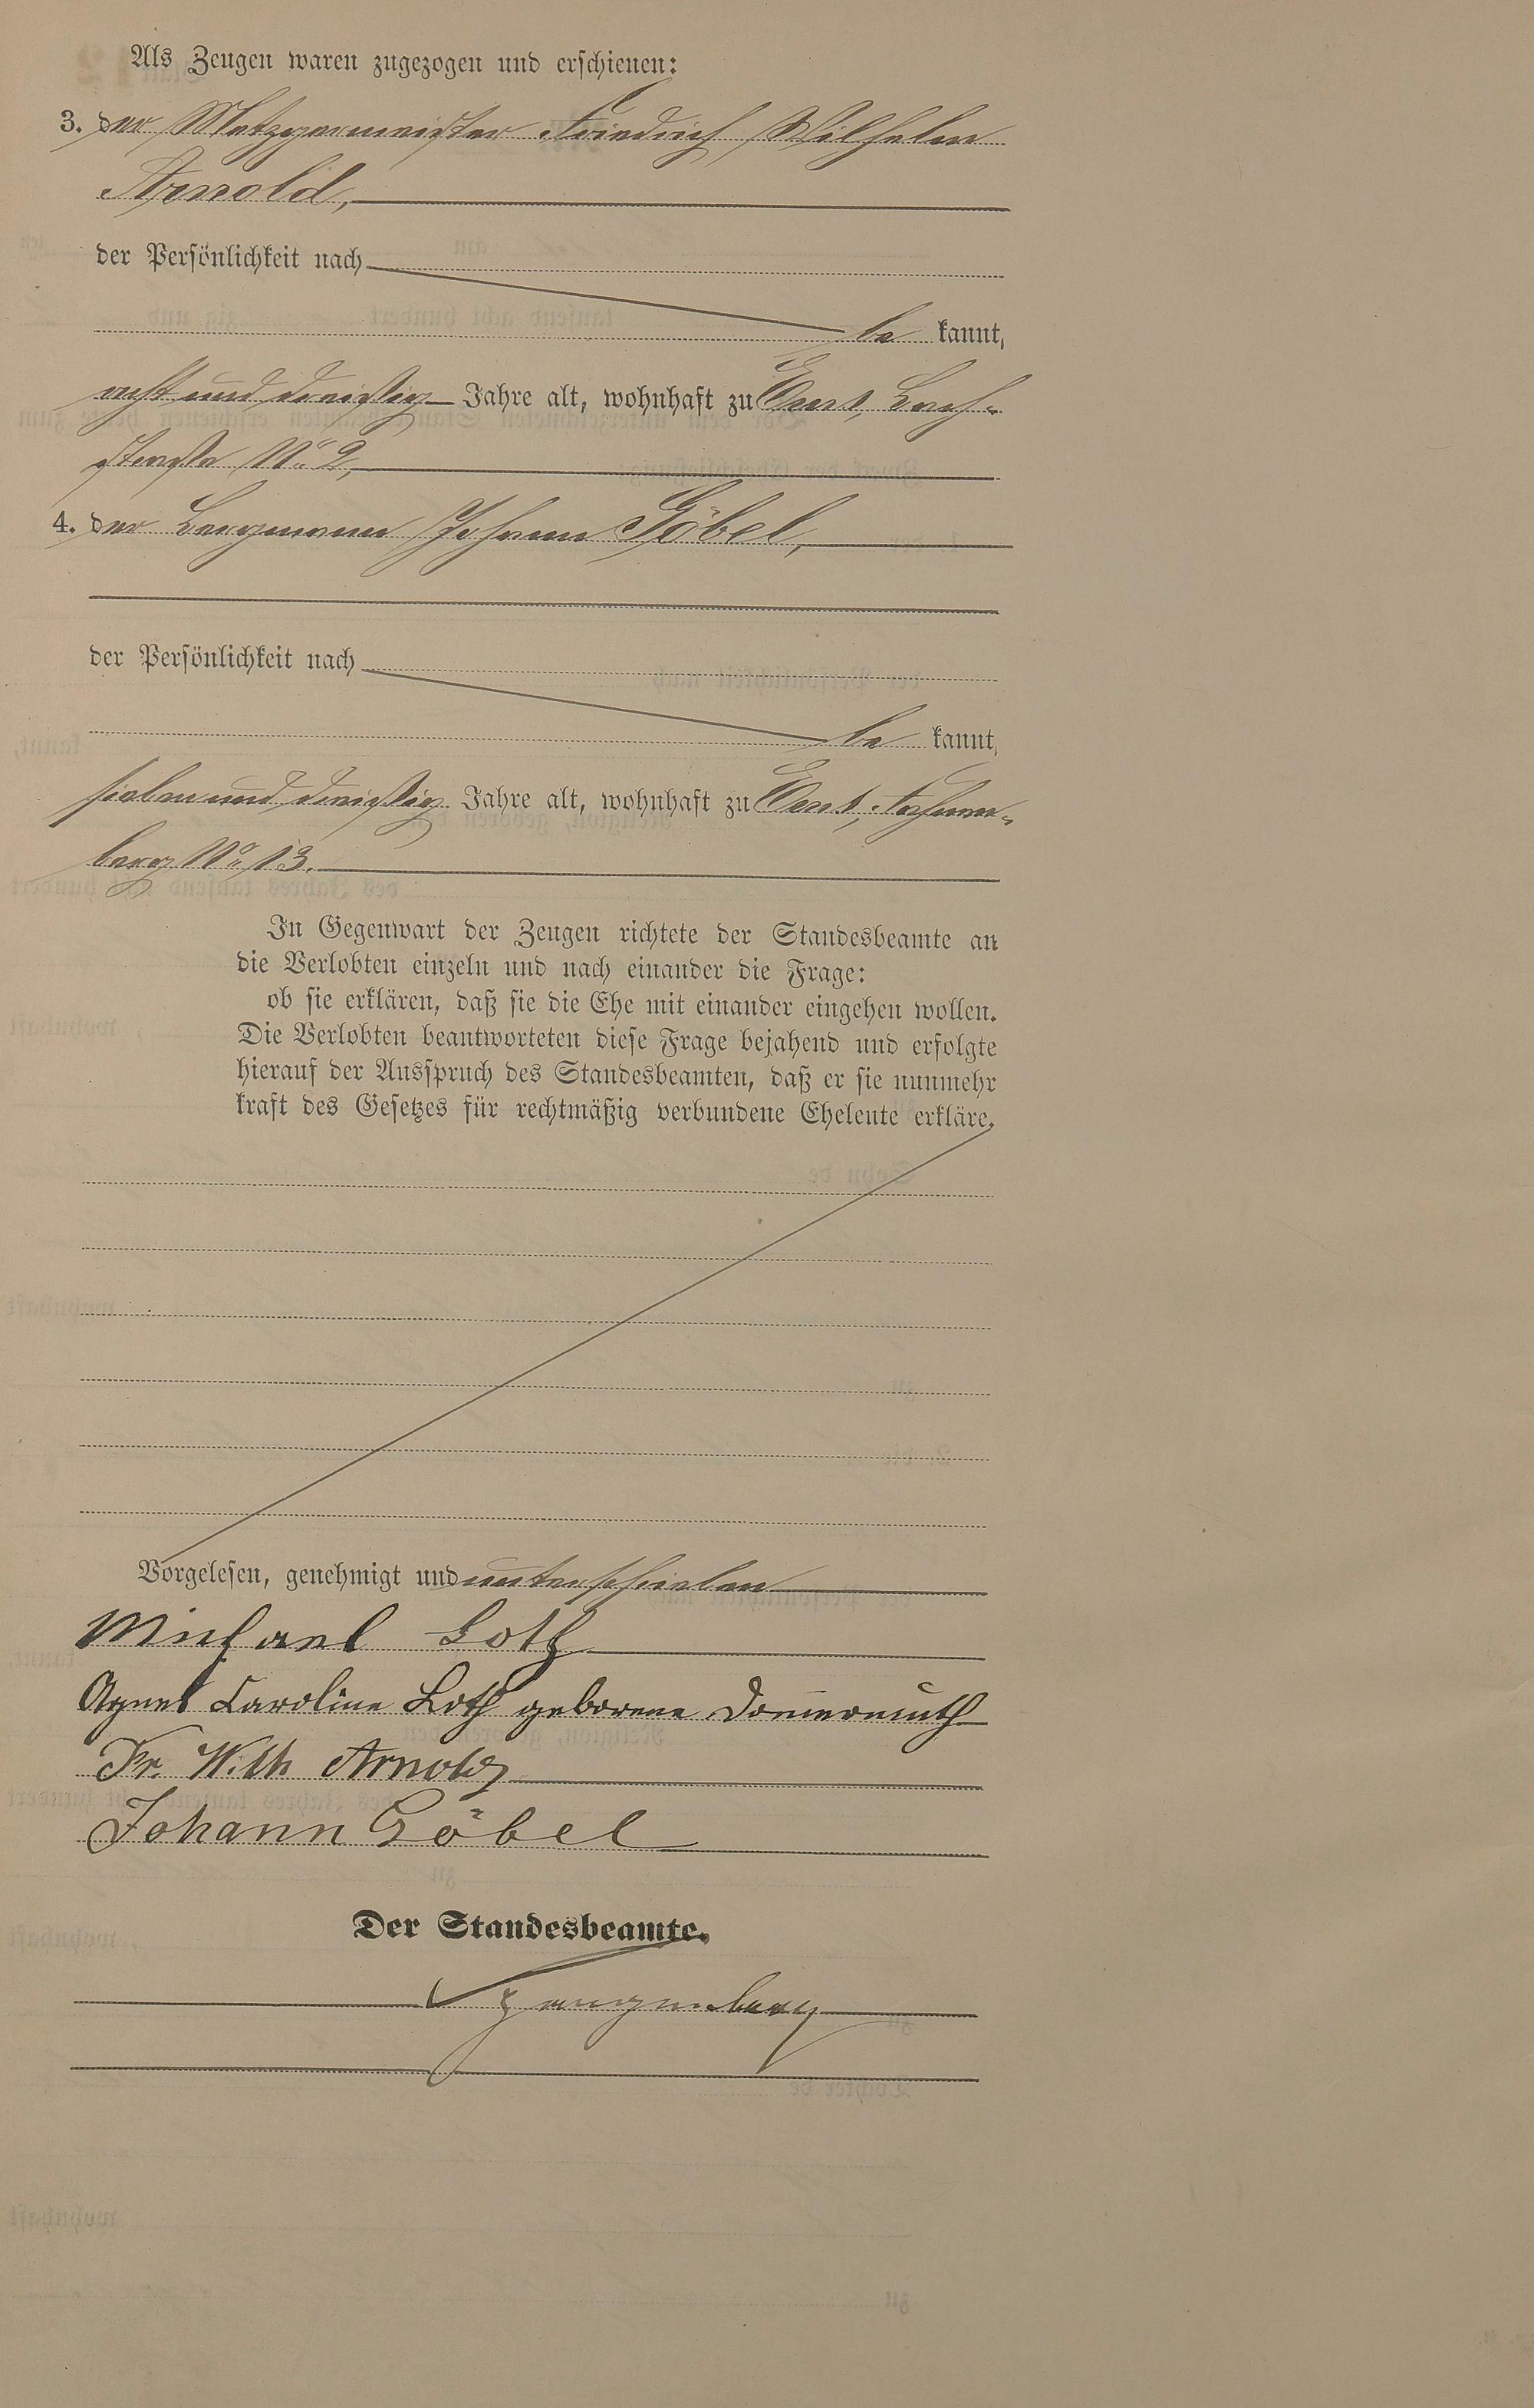 Als Zeugen waren zugezogen und erschienen:
3. der Metzgermeister Friedrich Wilhelm
Arnold,
der Persönlichkeit nach
be kannt,
acht und dreißig Jahre alt, wohnhaft zu Ems, Bach-
straße No 2,
4. der Bergmann Johann Göbel,
der Persönlichkeit nach
be kannt,
sieben und dreißig Jahre alt, wohnhaft zu Ems,
berg No 13.
In Gegenwart der Zeugen richtete der Standesbeamte an
die Verlobten einzeln und nach einander die Frage:
ob sie erklären, daß sie die Ehe mit einander eingehen wollen.
Die Verlobten beantworteten diese Frage bejahend und erfolgte
hierauf der Ausspruch des Standesbeamten, daß er sie nunmehr
kraft des Gesetzes für rechtmäßig verbundene Eheleute erkläre.
Vorgelesen, genehmigt und unterschrieben
Michael Loth
Agnes Caroline Loth geborene Donnermuth
Fr. Wilh Arnold
Johann Göbel
Der Standesbeamte.